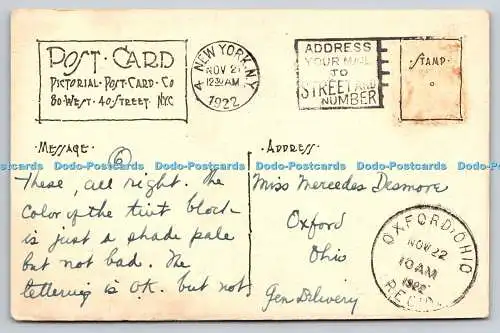 POST·CARD
PICTORIAL·POST·CARD·CO
80·WEST·40·STREET·NYC
NEW YORK, N.Y.
4
NOV 2
12 30 AM
1922
ADDRESS
YOUR MAIL
TO
STREET AND
NUMBER
STAMP
·MESSAGE·
6
These, all right. The
color of the tint block
is just a shade pale
but not bad. The
lettering is O.K. but not
·ADDRESS·
Miss Mercedes Desmore
Oxford
Ohio
Gen Delivery
OXFORD, OHIO
NOV 22
10 AM
1922
REC'D
Dodo-Postcards Dodo-Postcards Dodo-Postcards Dodo-Postcards Dodo-Postcards